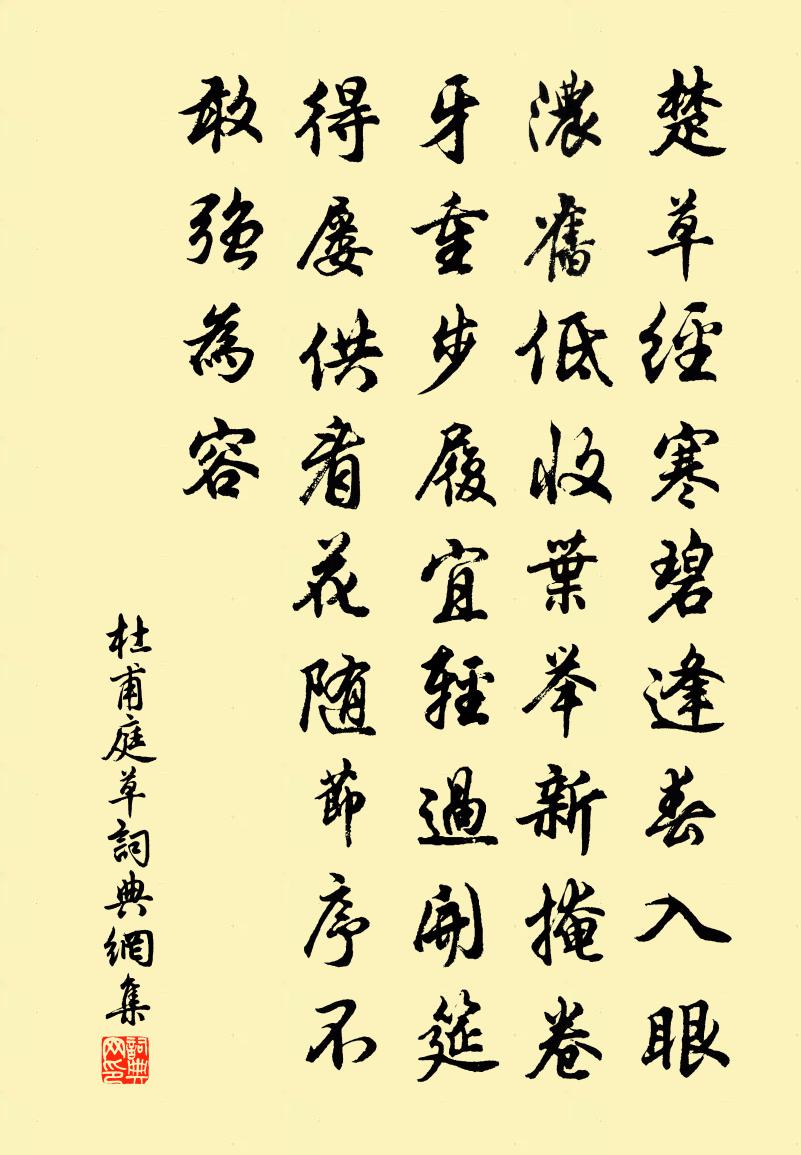 楚草經寒碧逢春入眼
濃舊低收葉舉新掩卷
牙重步履宜輕過開筵
得屢供看花隨節序不
敢強為容
杜甫庭草詞典網集
詞典网印